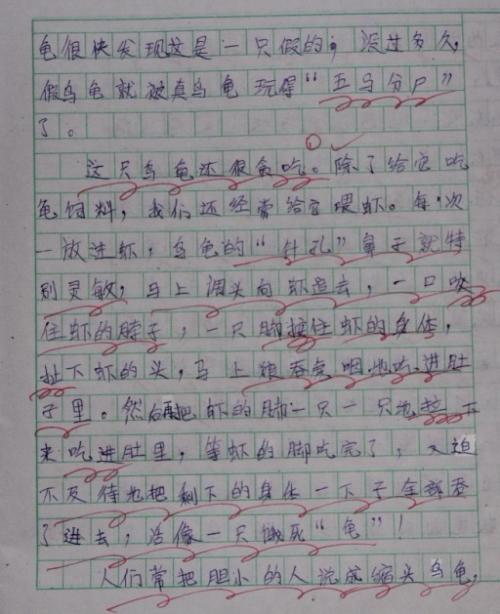 龟很快发现这是一只假的，没过多久，
假乌龟就被真乌龟玩得“五马分尸”
了。
这只乌龟还很贪吃。除了给它吃
龟饲料，我们还经常给它喂虾。每次
一放进虾，乌龟的“针孔”鼻子就特
别灵敏，马上调头向虾追去，一口咬
住虾的脖子，一只脚按住虾的身体，
扯下虾的头，马上狼吞虎咽地吃进肚
子里。然后再把虾的脚一只一只地拉下
来吃进肚里，等虾的脚吃完了，又迫
不及待地把剩下的身体一下子全部吞
了进去，活像一只饿死“龟”！
人们常把胆小的人说成缩头乌龟，